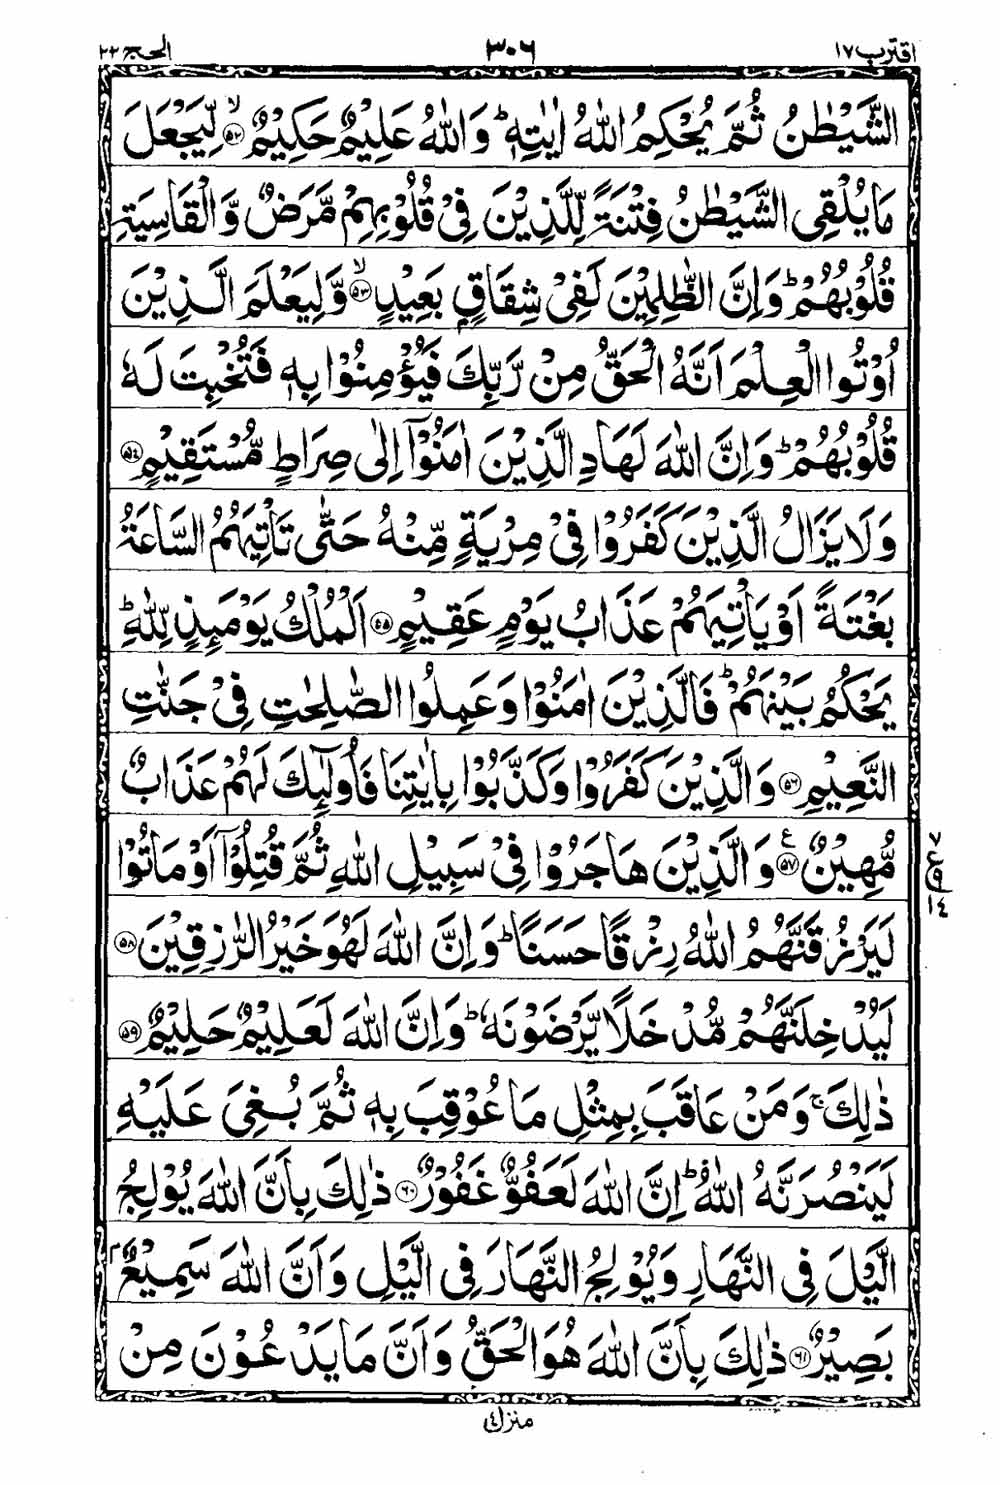 اقترب ١٧ ٣٠٦ الحج ٢٢
الشَّيْطٰنُ ثُمَّ يُحْكِمُ اللّٰهُ اٰيٰتِهٖ ؕ وَاللّٰهُ عَلِيْمٌ حَكِيْمٌ ۙ﴿۵۲﴾ لِّيَجْعَلَ
مَا يُلْقِى الشَّيْطٰنُ فِتْنَةً لِّلَّذِيْنَ فِىْ قُلُوْبِهِمْ مَّرَضٌ وَّالْقَاسِيَةِ
قُلُوْبُهُمْ ؕ وَاِنَّ الظّٰلِمِيْنَ لَفِىْ شِقَاقٍۭ بَعِيْدٍ ۙ﴿۵۳﴾ وَّلِيَعْلَمَ الَّذِيْنَ
اُوْتُوا الْعِلْمَ اَنَّهُ الْحَقُّ مِنْ رَّبِّكَ فَيُؤْمِنُوْا بِهٖ فَتُخْبِتَ لَهٗ
قُلُوْبُهُمْ ؕ وَاِنَّ اللّٰهَ لَهَادِ الَّذِيْنَ اٰمَنُوْۤا اِلٰى صِرَاطٍ مُّسْتَقِيْمٍ ﴿۵۴﴾
وَلَا يَزَالُ الَّذِيْنَ كَفَرُوْا فِىْ مِرْيَةٍ مِّنْهُ حَتّٰى تَاْتِيَهُمُ السَّاعَةُ
بَغْتَةً اَوْ يَاْتِيَهُمْ عَذَابُ يَوْمٍ عَقِيْمٍ ﴿۵۵﴾ اَلْمُلْكُ يَوْمَئِذٍ لِّلّٰهِ ؕ
يَحْكُمُ بَيْنَهُمْ ؕ فَالَّذِيْنَ اٰمَنُوْا وَعَمِلُوا الصّٰلِحٰتِ فِىْ جَنّٰتِ
النَّعِيْمِ ﴿۵۶﴾ وَالَّذِيْنَ كَفَرُوْا وَكَذَّبُوْا بِاٰيٰتِنَا فَاُولٰٓئِكَ لَهُمْ عَذَابٌ
مُّهِيْنٌ ﴿۵۷﴾ ع وَالَّذِيْنَ هَاجَرُوْا فِىْ سَبِيْلِ اللّٰهِ ثُمَّ قُتِلُوْۤا اَوْ مَاتُوْا
لَيَرْزُقَنَّهُمُ اللّٰهُ رِزْقًا حَسَنًا ؕ وَاِنَّ اللّٰهَ لَهُوَ خَيْرُ الرّٰزِقِيْنَ ﴿۵۸﴾
لَيُدْخِلَنَّهُمْ مُّدْخَلًا يَّرْضَوْنَهٗ ؕ وَاِنَّ اللّٰهَ لَعَلِيْمٌ حَلِيْمٌ ﴿۵۹﴾
ذٰلِكَ ۚ وَمَنْ عَاقَبَ بِمِثْلِ مَا عُوْقِبَ بِهٖ ثُمَّ بُغِىَ عَلَيْهِ
لَيَنْصُرَنَّهُ اللّٰهُ ؕ اِنَّ اللّٰهَ لَعَفُوٌّ غَفُوْرٌ ﴿۶۰﴾ ذٰلِكَ بِاَنَّ اللّٰهَ يُوْلِجُ
الَّيْلَ فِى النَّهَارِ وَيُوْلِجُ النَّهَارَ فِى الَّيْلِ وَاَنَّ اللّٰهَ سَمِيْعٌۢ
بَصِيْرٌ ﴿۶۱﴾ ذٰلِكَ بِاَنَّ اللّٰهَ هُوَ الْحَقُّ وَاَنَّ مَا يَدْعُوْنَ مِنْ
منزل ٤